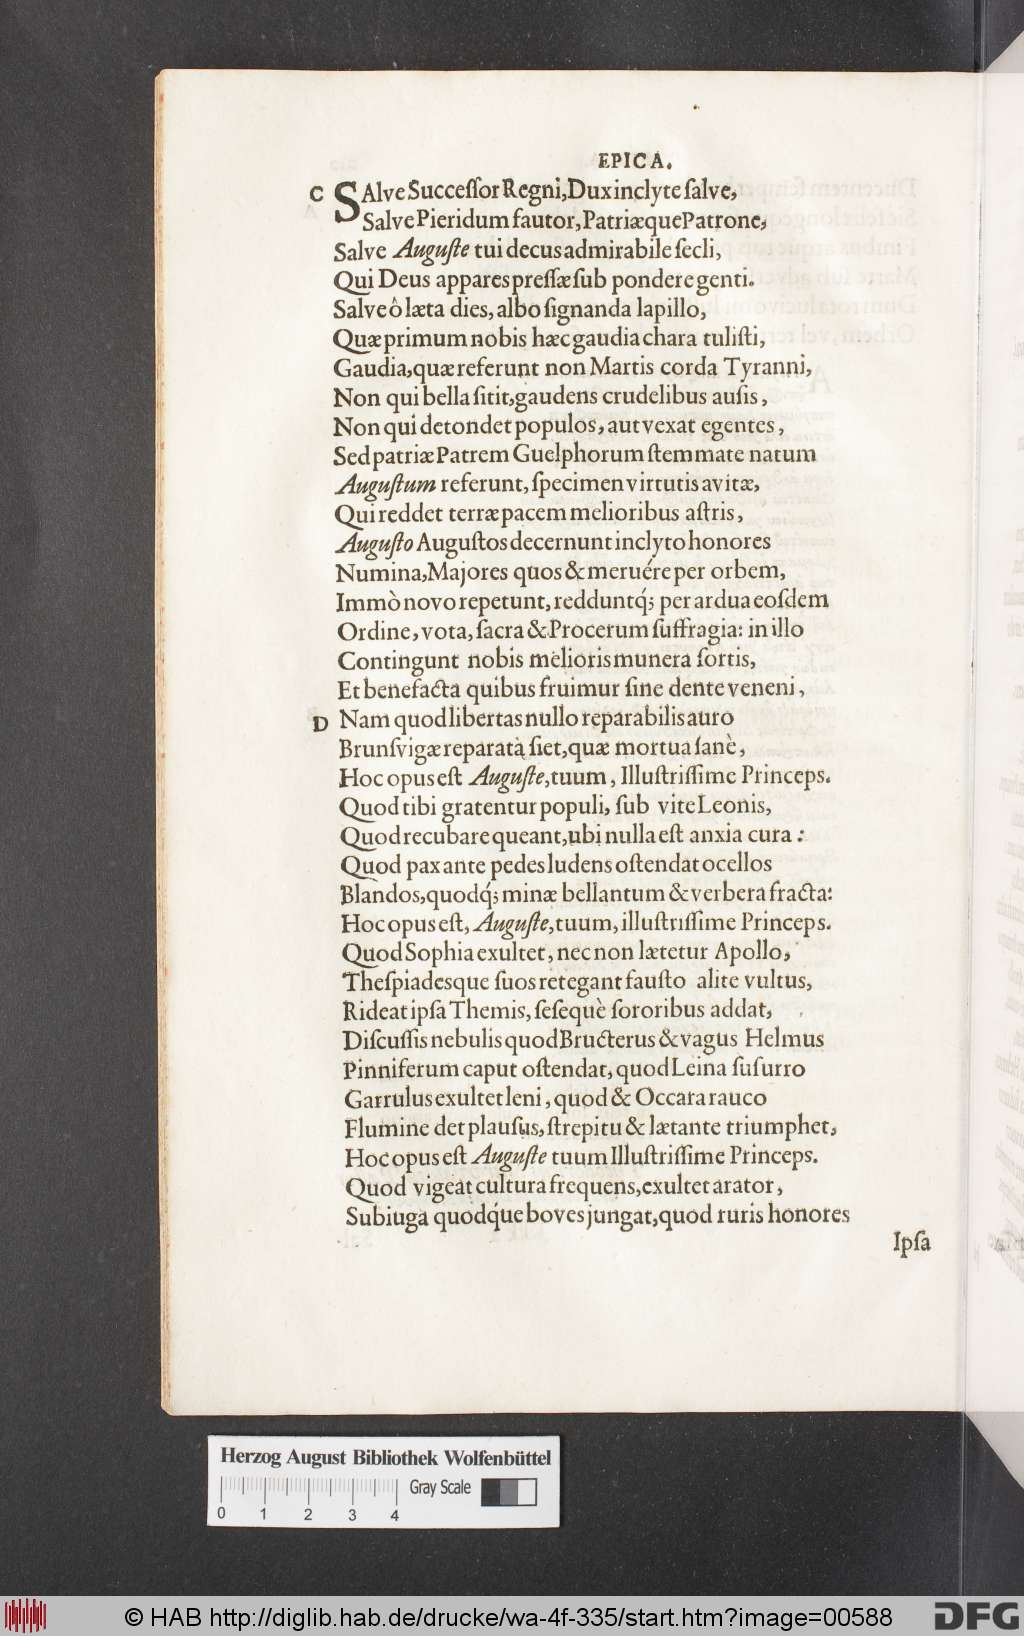 EPICA.
C SAlve Succeſſor Regni, Dux inclyte ſalve,
Salve Pieridum fautor, Patriæque Patrone,
Salve Auguſte tui decus admirabile ſecli,
Qui Deus appares preſſæ ſub pondere genti.
Salve ô læta dies, albo ſignanda lapillo,
Quæ primum nobis hæc gaudia chara tuliſti,
Gaudia, quæ referunt non Martis corda Tyranni,
Non qui bella ſitit, gaudens crudelibus auſis,
Non qui detondet populos, aut vexat egentes,
Sed patriæ Patrem Guelphorum ſtemmate natum
Auguſtum referunt, ſpecimen virtutis avitæ,
Qui reddet terræ pacem melioribus aſtris,
Auguſto Auguſtos decernunt inclyto honores
Numina, Majores quos & meruére per orbem,
Immò novo repetunt, redduntq́; per ardua eoſdem
Ordine, vota, ſacra & Procerum ſuffragia: in illo
Contingunt nobis melioris munera ſortis,
Et benefacta quibus fruimur ſine dente veneni,
D Nam quod libertas nullo reparabilis auro
Brunſvigæ reparata ſiet, quæ mortua ſanè,
Hoc opus eſt Auguſte, tuum, Illuſtriſſime Princeps.
Quod tibi gratentur populi, ſub vite Leonis,
Quod recubare queant, ubi nulla eſt anxia cura:
Quod pax ante pedes ludens oſtendat ocellos
Blandos, quodq́; minæ bellantum & verbera fracta:
Hoc opus eſt, Auguſte, tuum, illuſtriſſime Princeps.
Quod Sophia exultet, nec non lætetur Apollo,
Theſpiadesque ſuos retegant fauſto alite vultus,
Rideat ipſa Themis, ſeſequè ſororibus addat,
Diſcuſſis nebulis quod Bructerus & vagus Helmus
Pinniferum caput oſtendat, quod Leina ſuſurro
Garrulus exultet leni, quod & Occara rauco
Flumine det plauſus, ſtrepitu & lætante triumphet,
Hoc opus eſt Auguſte tuum Illuſtriſſime Princeps.
Quod vigeat cultura frequens, exultet arator,
Subiuga quodq́ue boves jungat, quod ruris honores
Ipſa
Herzog August Bibliothek Wolfenbüttel
Gray Scale
0 1 2 3 4
© HAB http://diglib.hab.de/drucke/wa-4f-335/start.htm?image=00588
DFG